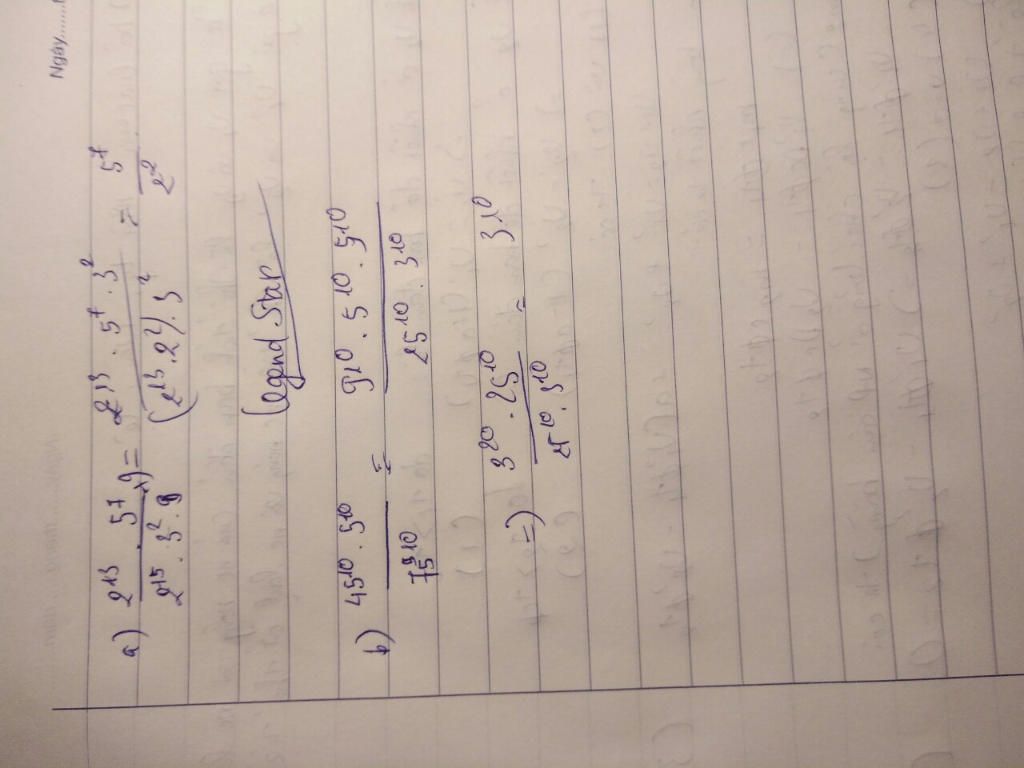 Ngày
a) 2¹³ . 5⁷ . 9 / 2¹⁵ . 3² = 2¹³ . 5⁷ . 3² / (2¹³ . 2²) . 3² = 5⁷ / 2²
Legend Star
b) 45¹⁰ . 5¹⁰ / 75¹⁰ = 9¹⁰ . 5¹⁰ . 5¹⁰ / 25¹⁰ . 3¹⁰
=) 3²⁰ . 25¹⁰ / 25¹⁰ . 3¹⁰ = 3¹⁰